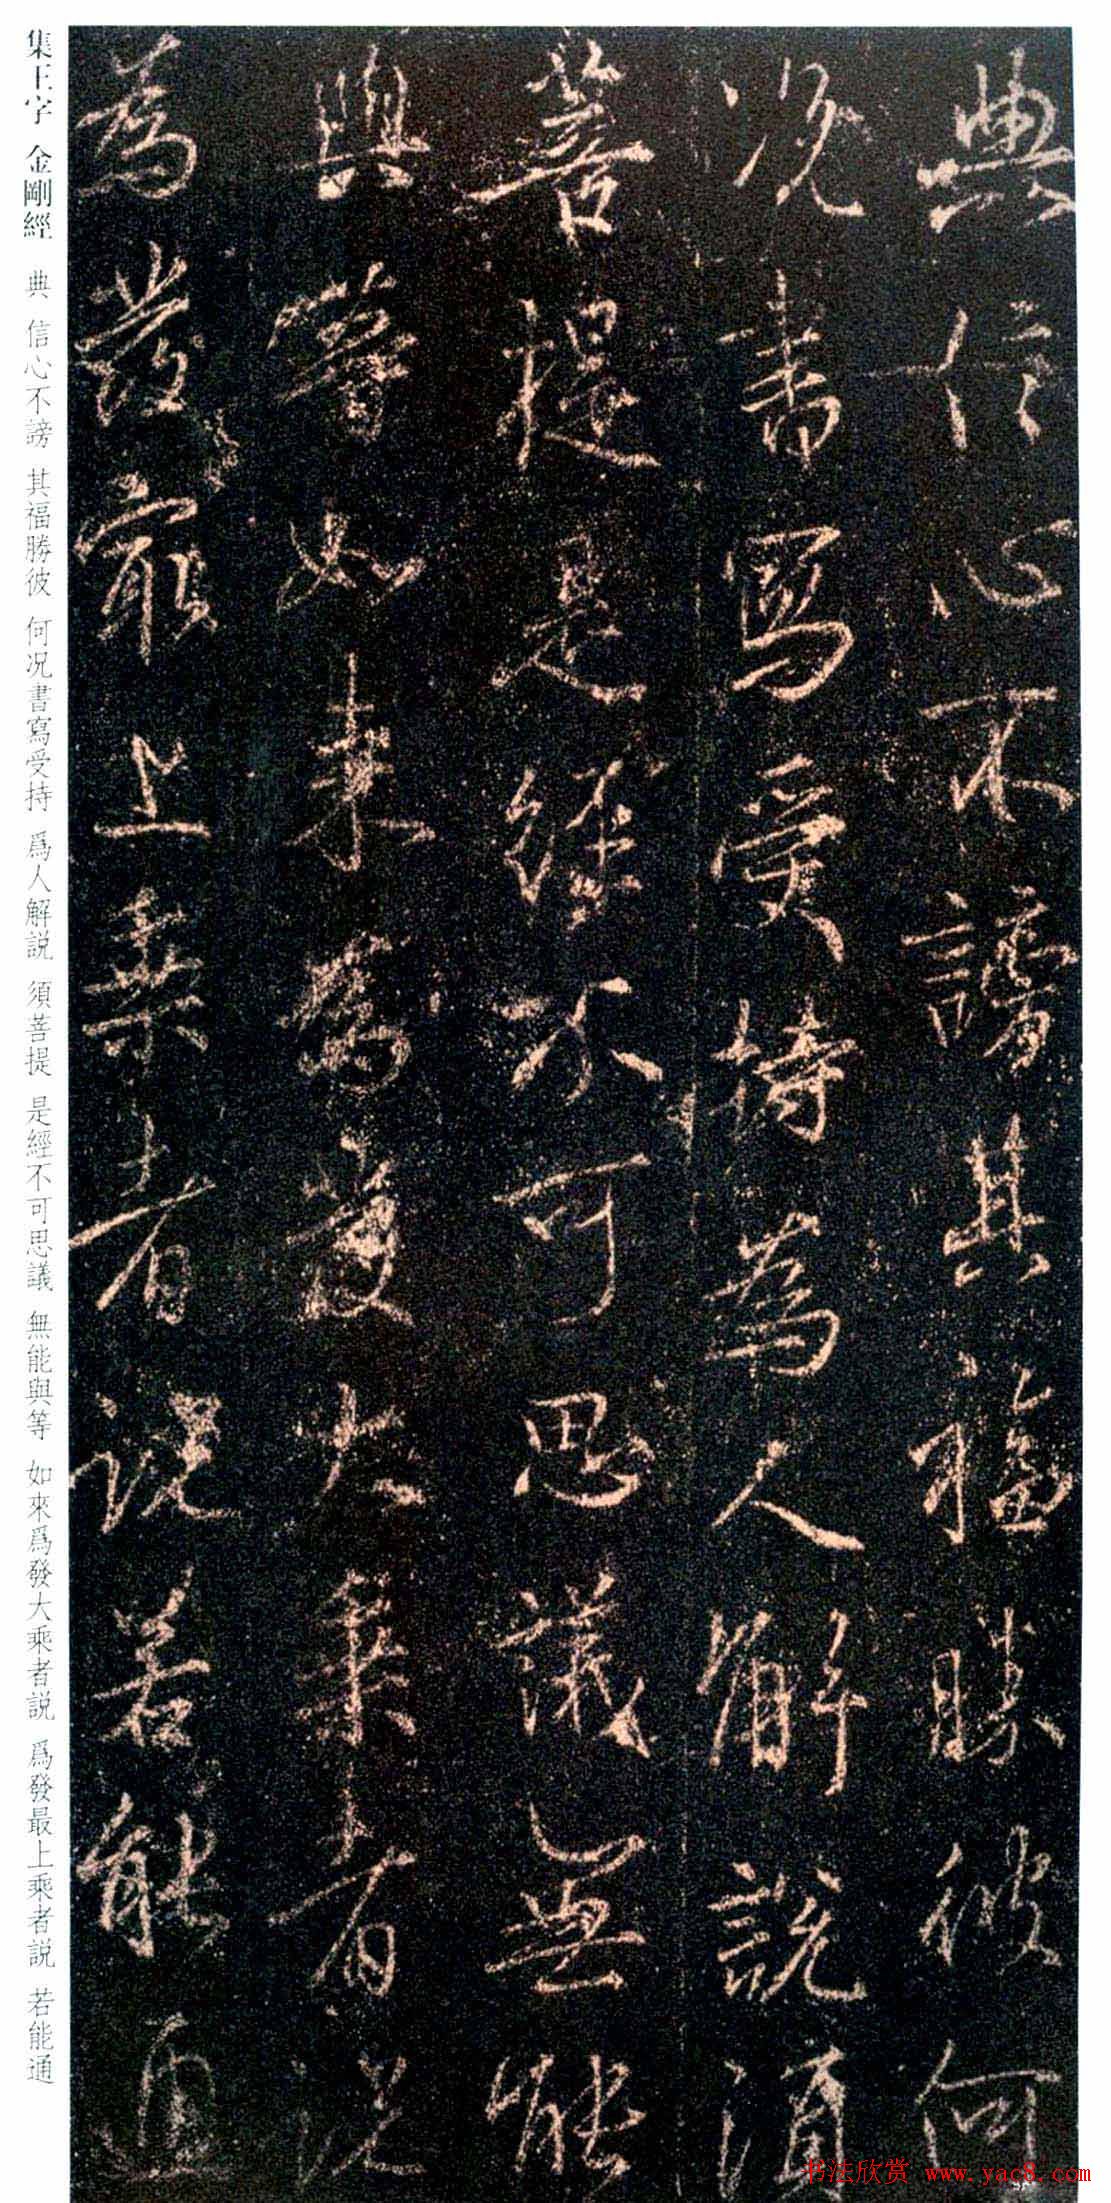 典信心不謗其福勝彼何
況書寫受持為人解說須
菩提是經不可思議無能
與等如来為發大乗者説
為發最上乗者説若能通
集王字 金剛經 典 信心不謗 其福勝彼 何況書寫受持 爲人解説 須菩提 是經不可思議 無能與等 如來爲發大乘者説 爲發最上乘者説 若能通
书法欣赏 www.yac8.com